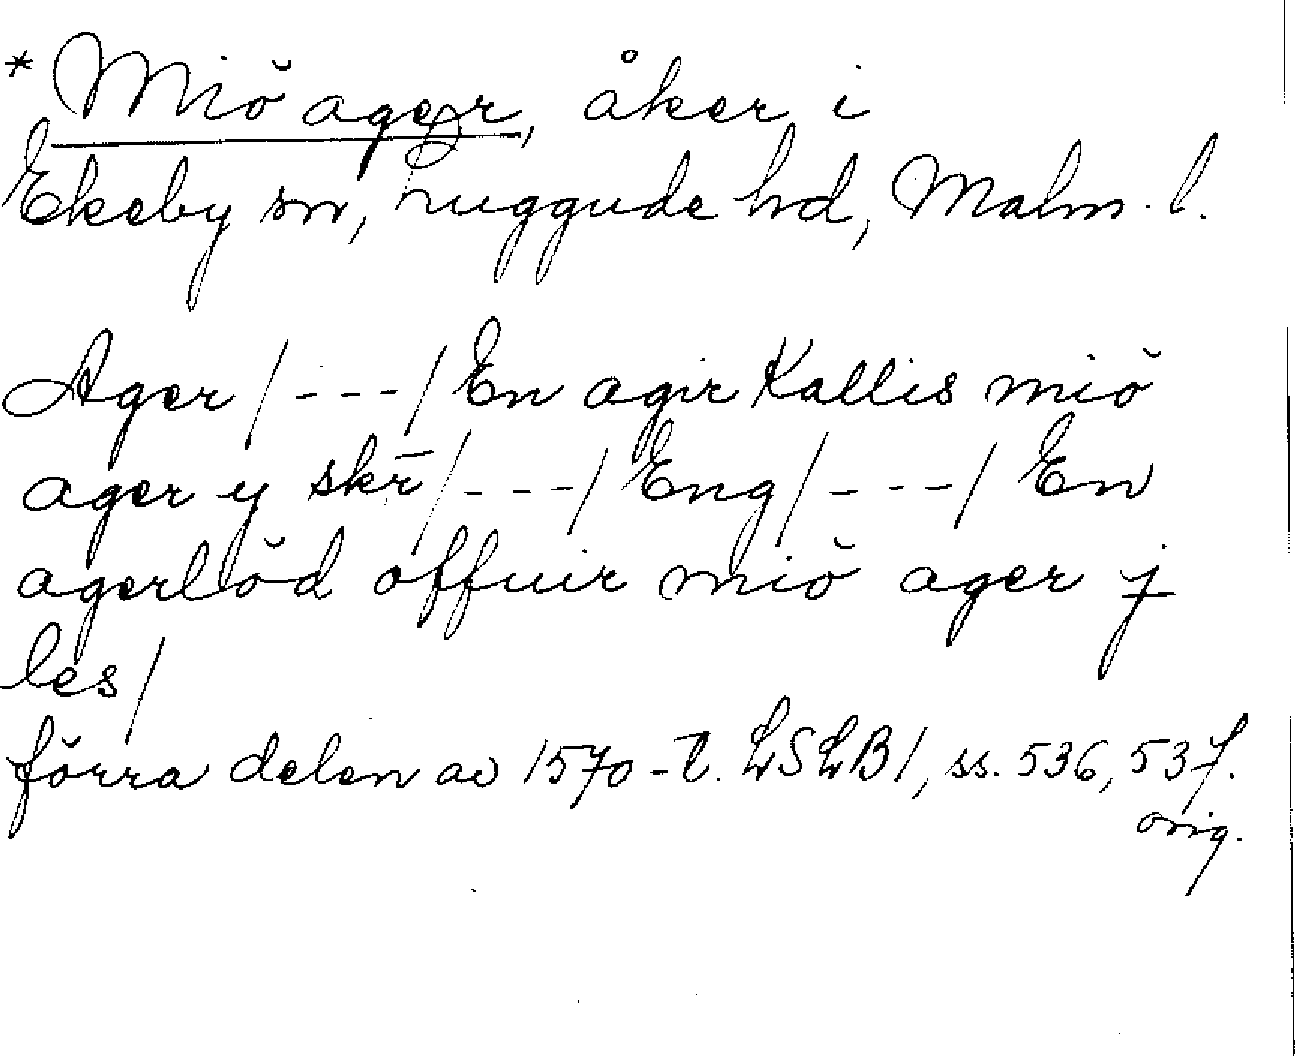 * Miö ager, åker i
Ekeby sn, Luggude hd, Malm. l.
Ager /---/ En agir Kallis miö
ager y skr̅ /---/ Eng /---/ En
agerlöd offuir miö ager j
les/
förra delen av 1570-t. LSLB 1, ss. 536, 537.
orig.